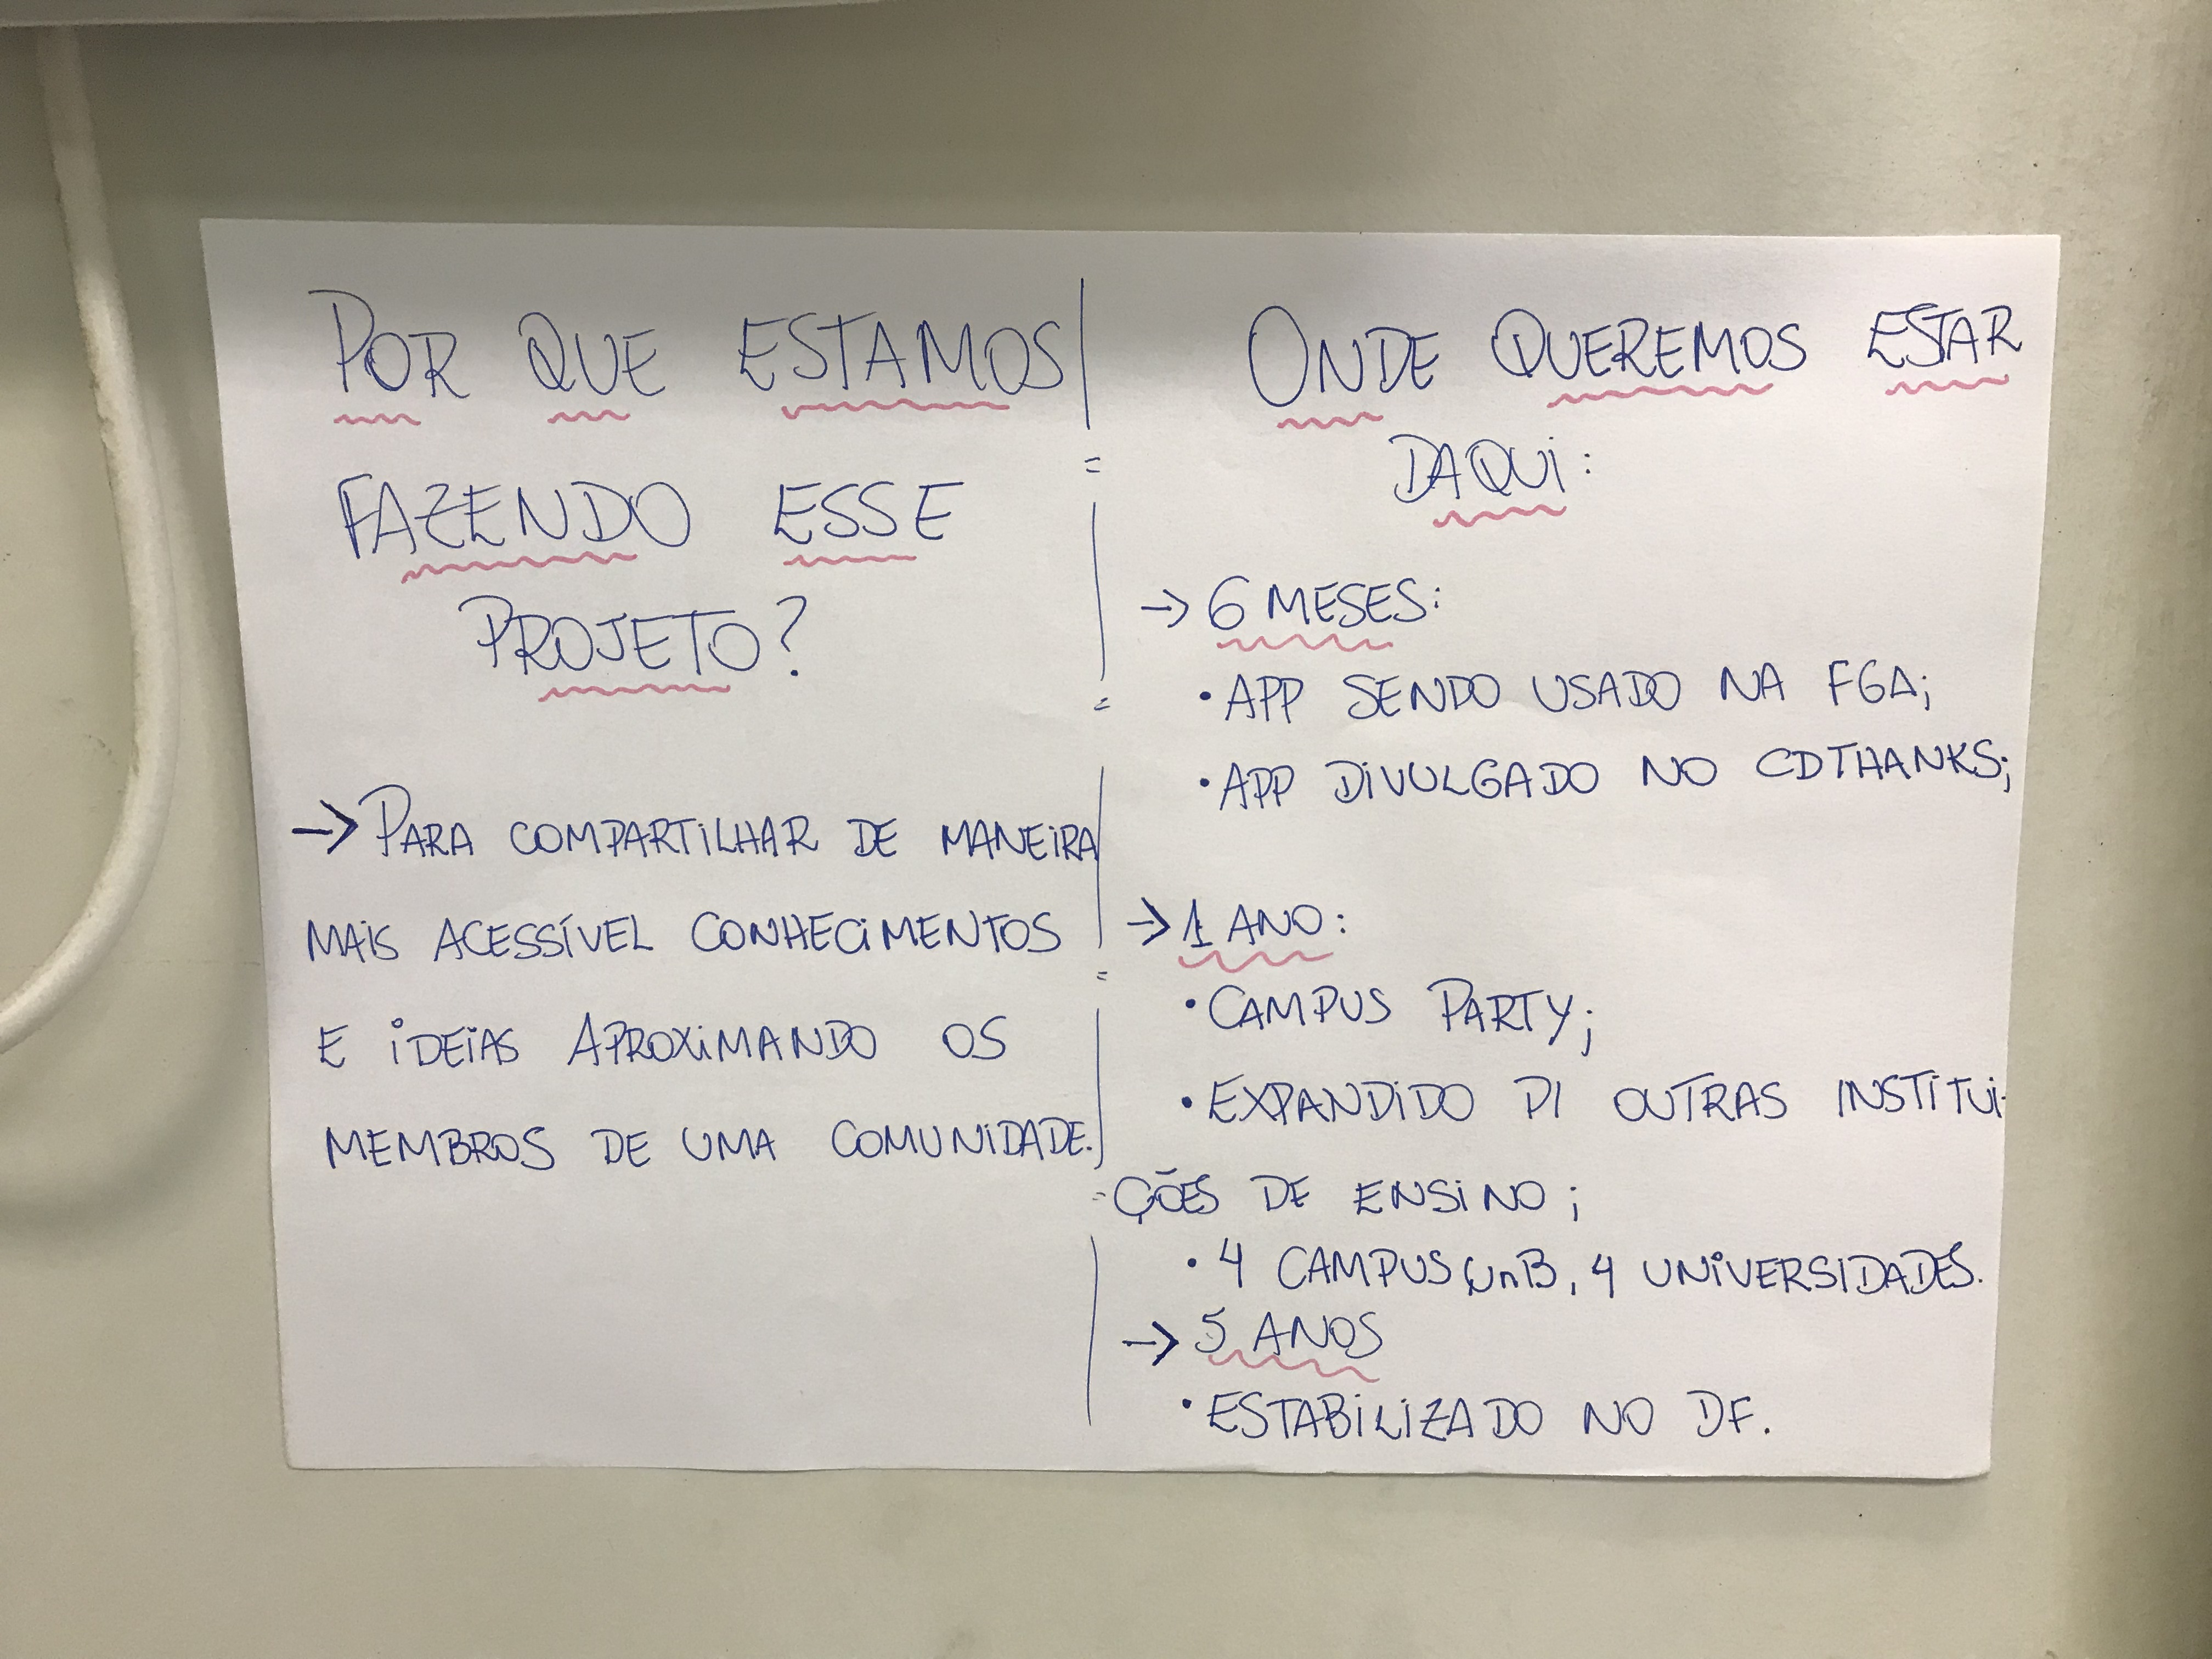 POR QUE ESTAMOS
FAZENDO ESSE
PROJETO?
→ PARA COMPARTILHAR DE MANEIRA
MAIS ACESSÍVEL CONHECIMENTOS
E IDEIAS APROXIMANDO OS
MEMBROS DE UMA COMUNIDADE.
ONDE QUEREMOS ESTAR
DAQUI:
→ 6 MESES:
• APP SENDO USADO NA FGA;
• APP DIVULGADO NO CDTHANKS;
→ 1 ANO:
• CAMPUS PARTY;
• EXPANDIDO P/ OUTRAS INSTITUI-
ÇÕES DE ENSINO;
• 4 CAMPUS UnB, 4 UNIVERSIDADES.
→ 5 ANOS
• ESTABILIZADO NO DF.